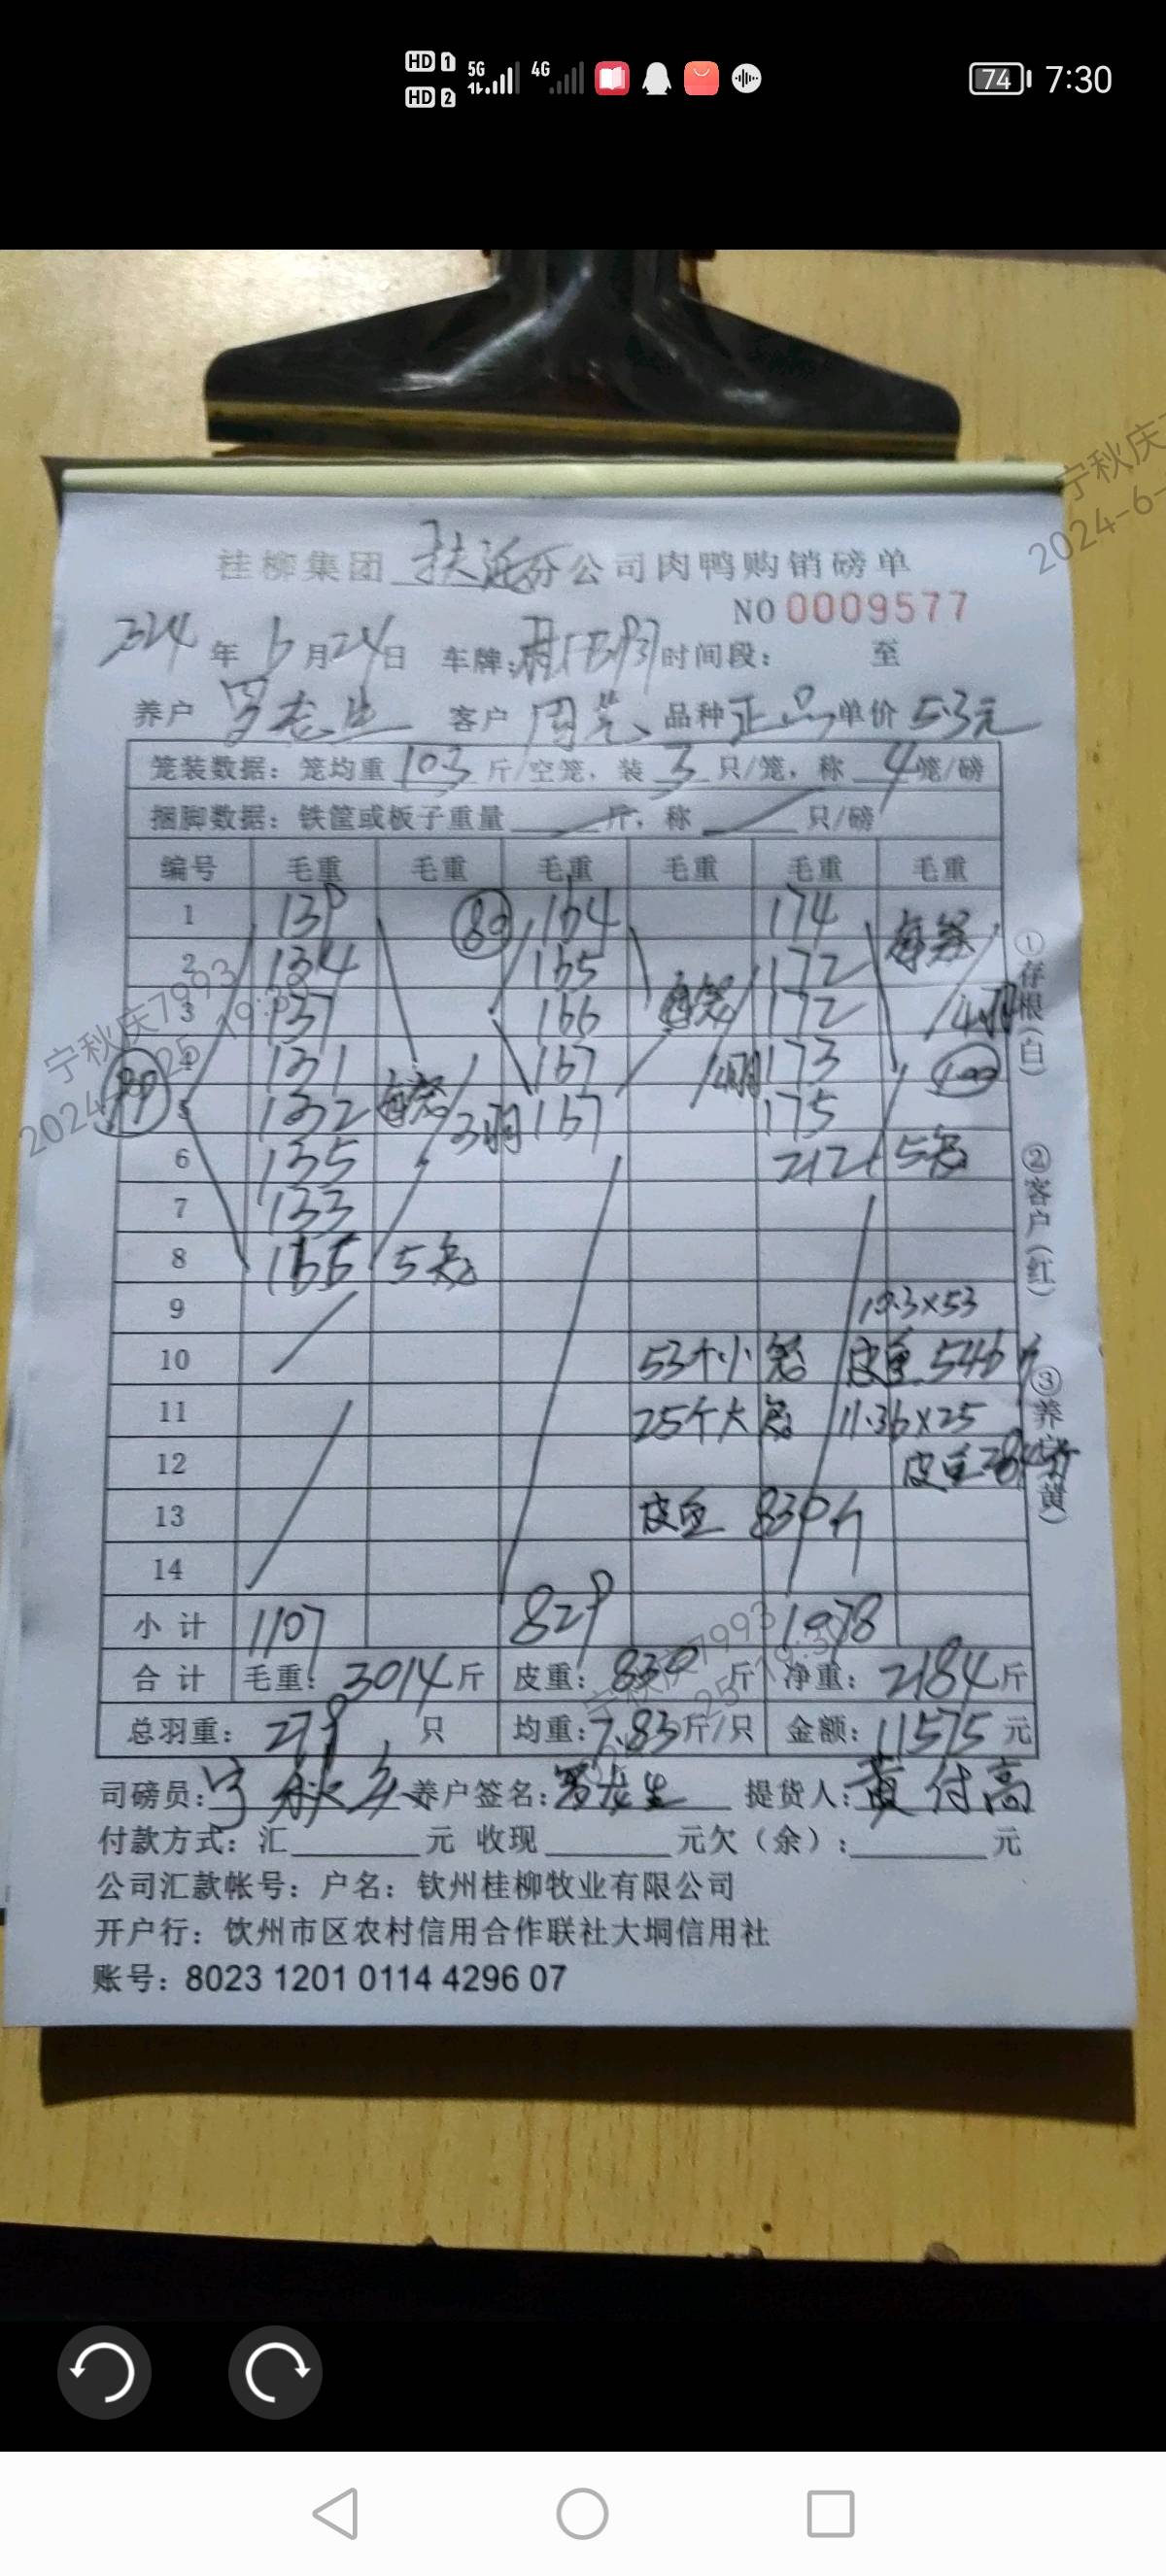 HD 1 5G 4G 74 7:30
HD 2
宁秋庆
2024-6-
桂柳集团 分公司肉鸭购销磅单
NO 0009577
2024 年 6 月 24 日 车牌: 时间段: 至
养户 罗龙生 客户 品种 正品 单价 5.3元
笼装数据: 笼均重 10.3 斤/空笼, 装 3 只/笼, 称 4 笼/磅
捆脚数据: 铁筐或板子重量 斤, 称 只/磅
编号 毛重 毛重 毛重 毛重 毛重 毛重
1 139 80 164 174 每笼
2 134 165 172
3 137 166 每笼 172 4羽
4 131 167 4羽 173 100
5 132 每笼 3羽 167 175
6 135 212 5笼
7 133
8 166 5笼
9 10.3×53
10 53个小笼 皮重 546斤
11 25个大笼 11.36×25
12 皮重284斤
13 皮重 830斤
14
小计 1107 829 1078
合计 毛重: 3014斤 皮重: 830斤 净重: 2184斤
总羽重: 279 只 均重: 7.83斤/只 金额: 11575 元
司磅员: 宁秋庆 养户签名: 罗龙生 提货人: 黄付高
付款方式: 汇 元 收现 元欠(余): 元
公司汇款帐号: 户名: 钦州桂柳牧业有限公司
开户行: 饮州市区农村信用合作联社大垌信用社
账号: 8023 1201 0114 4296 07
①存根(白)
②客户(红)
③养户(黄)
宁秋庆7993